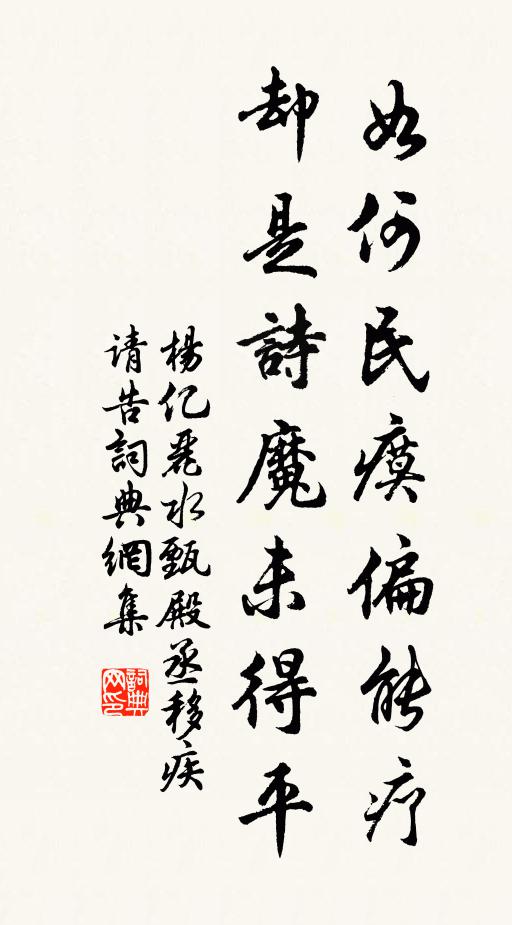 如何民瘼偏能疗
却是詩魔未得平
楊亿麗水甄殿丞移疾
请告詞典網集
詞典网印